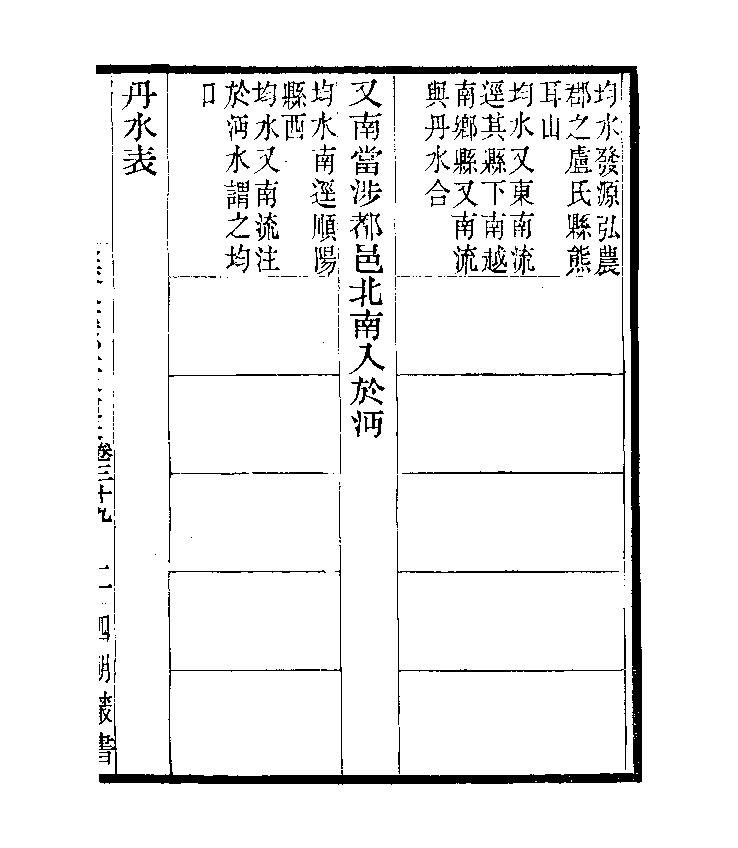 均水發源弘農
郡之盧氏縣熊
耳山
均水又東南流
逕其縣下南越
南鄉縣又南流
與丹水合
又南當涉都邑北南入於沔
均水南逕順陽
縣西
均水又南流注
於沔水謂之均
口
丹水表
卷三十九
二
四明叢書